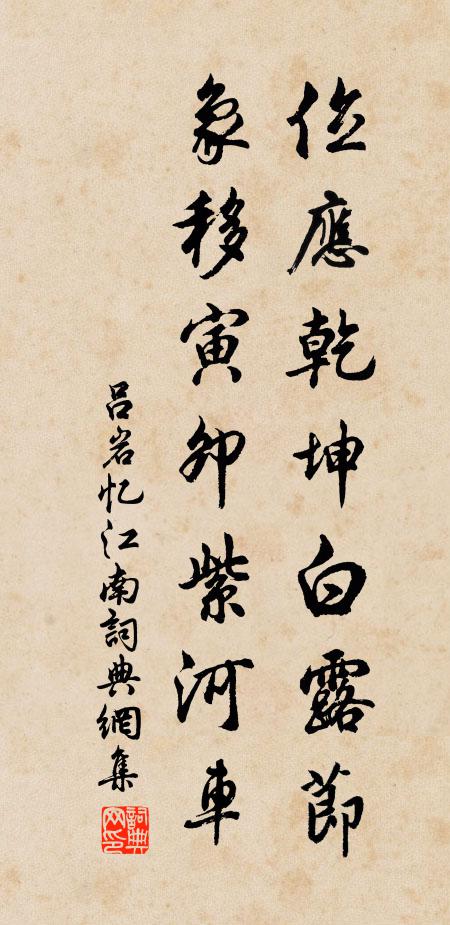 位應乾坤白露節
象移寅卯紫河車
吕岩忆江南詞典網集
詞典
网印